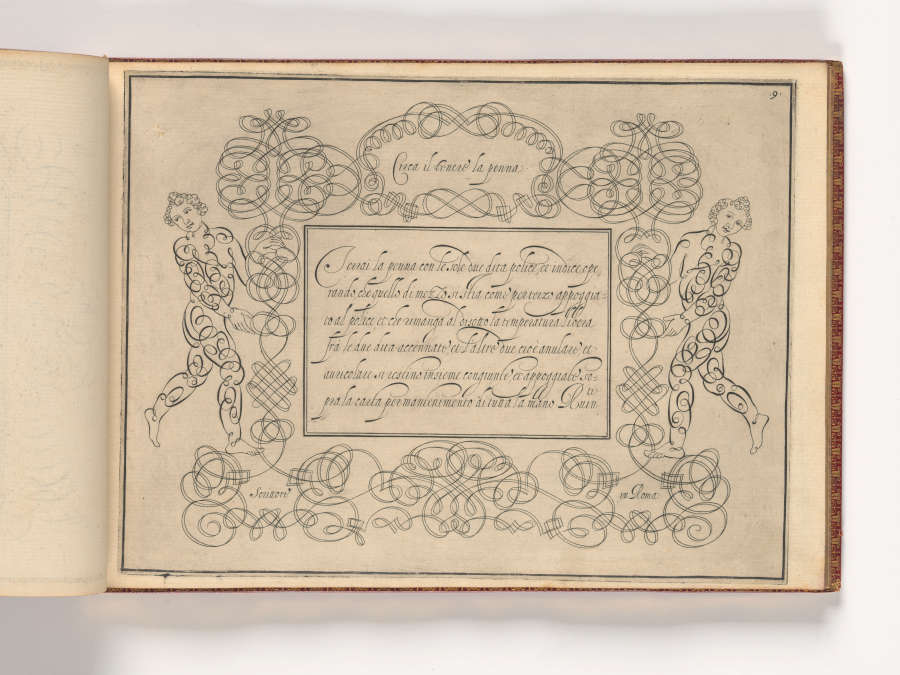 .9.
Circa il tener la penna.
Terrai la penna con le sole due dita police, et indice ope,
rando, che quello di mezzo si stia come per terzo appoggia=
to al police et che rimanga al disotto la temperatura libera
fra le due dita accennate et l'altre due cioè anulare et
auricolare si insieme congiunte et appoggiate so=
pra la carta per mantenimento di tutta la mano. Ruin.ti
Scrittore in Roma